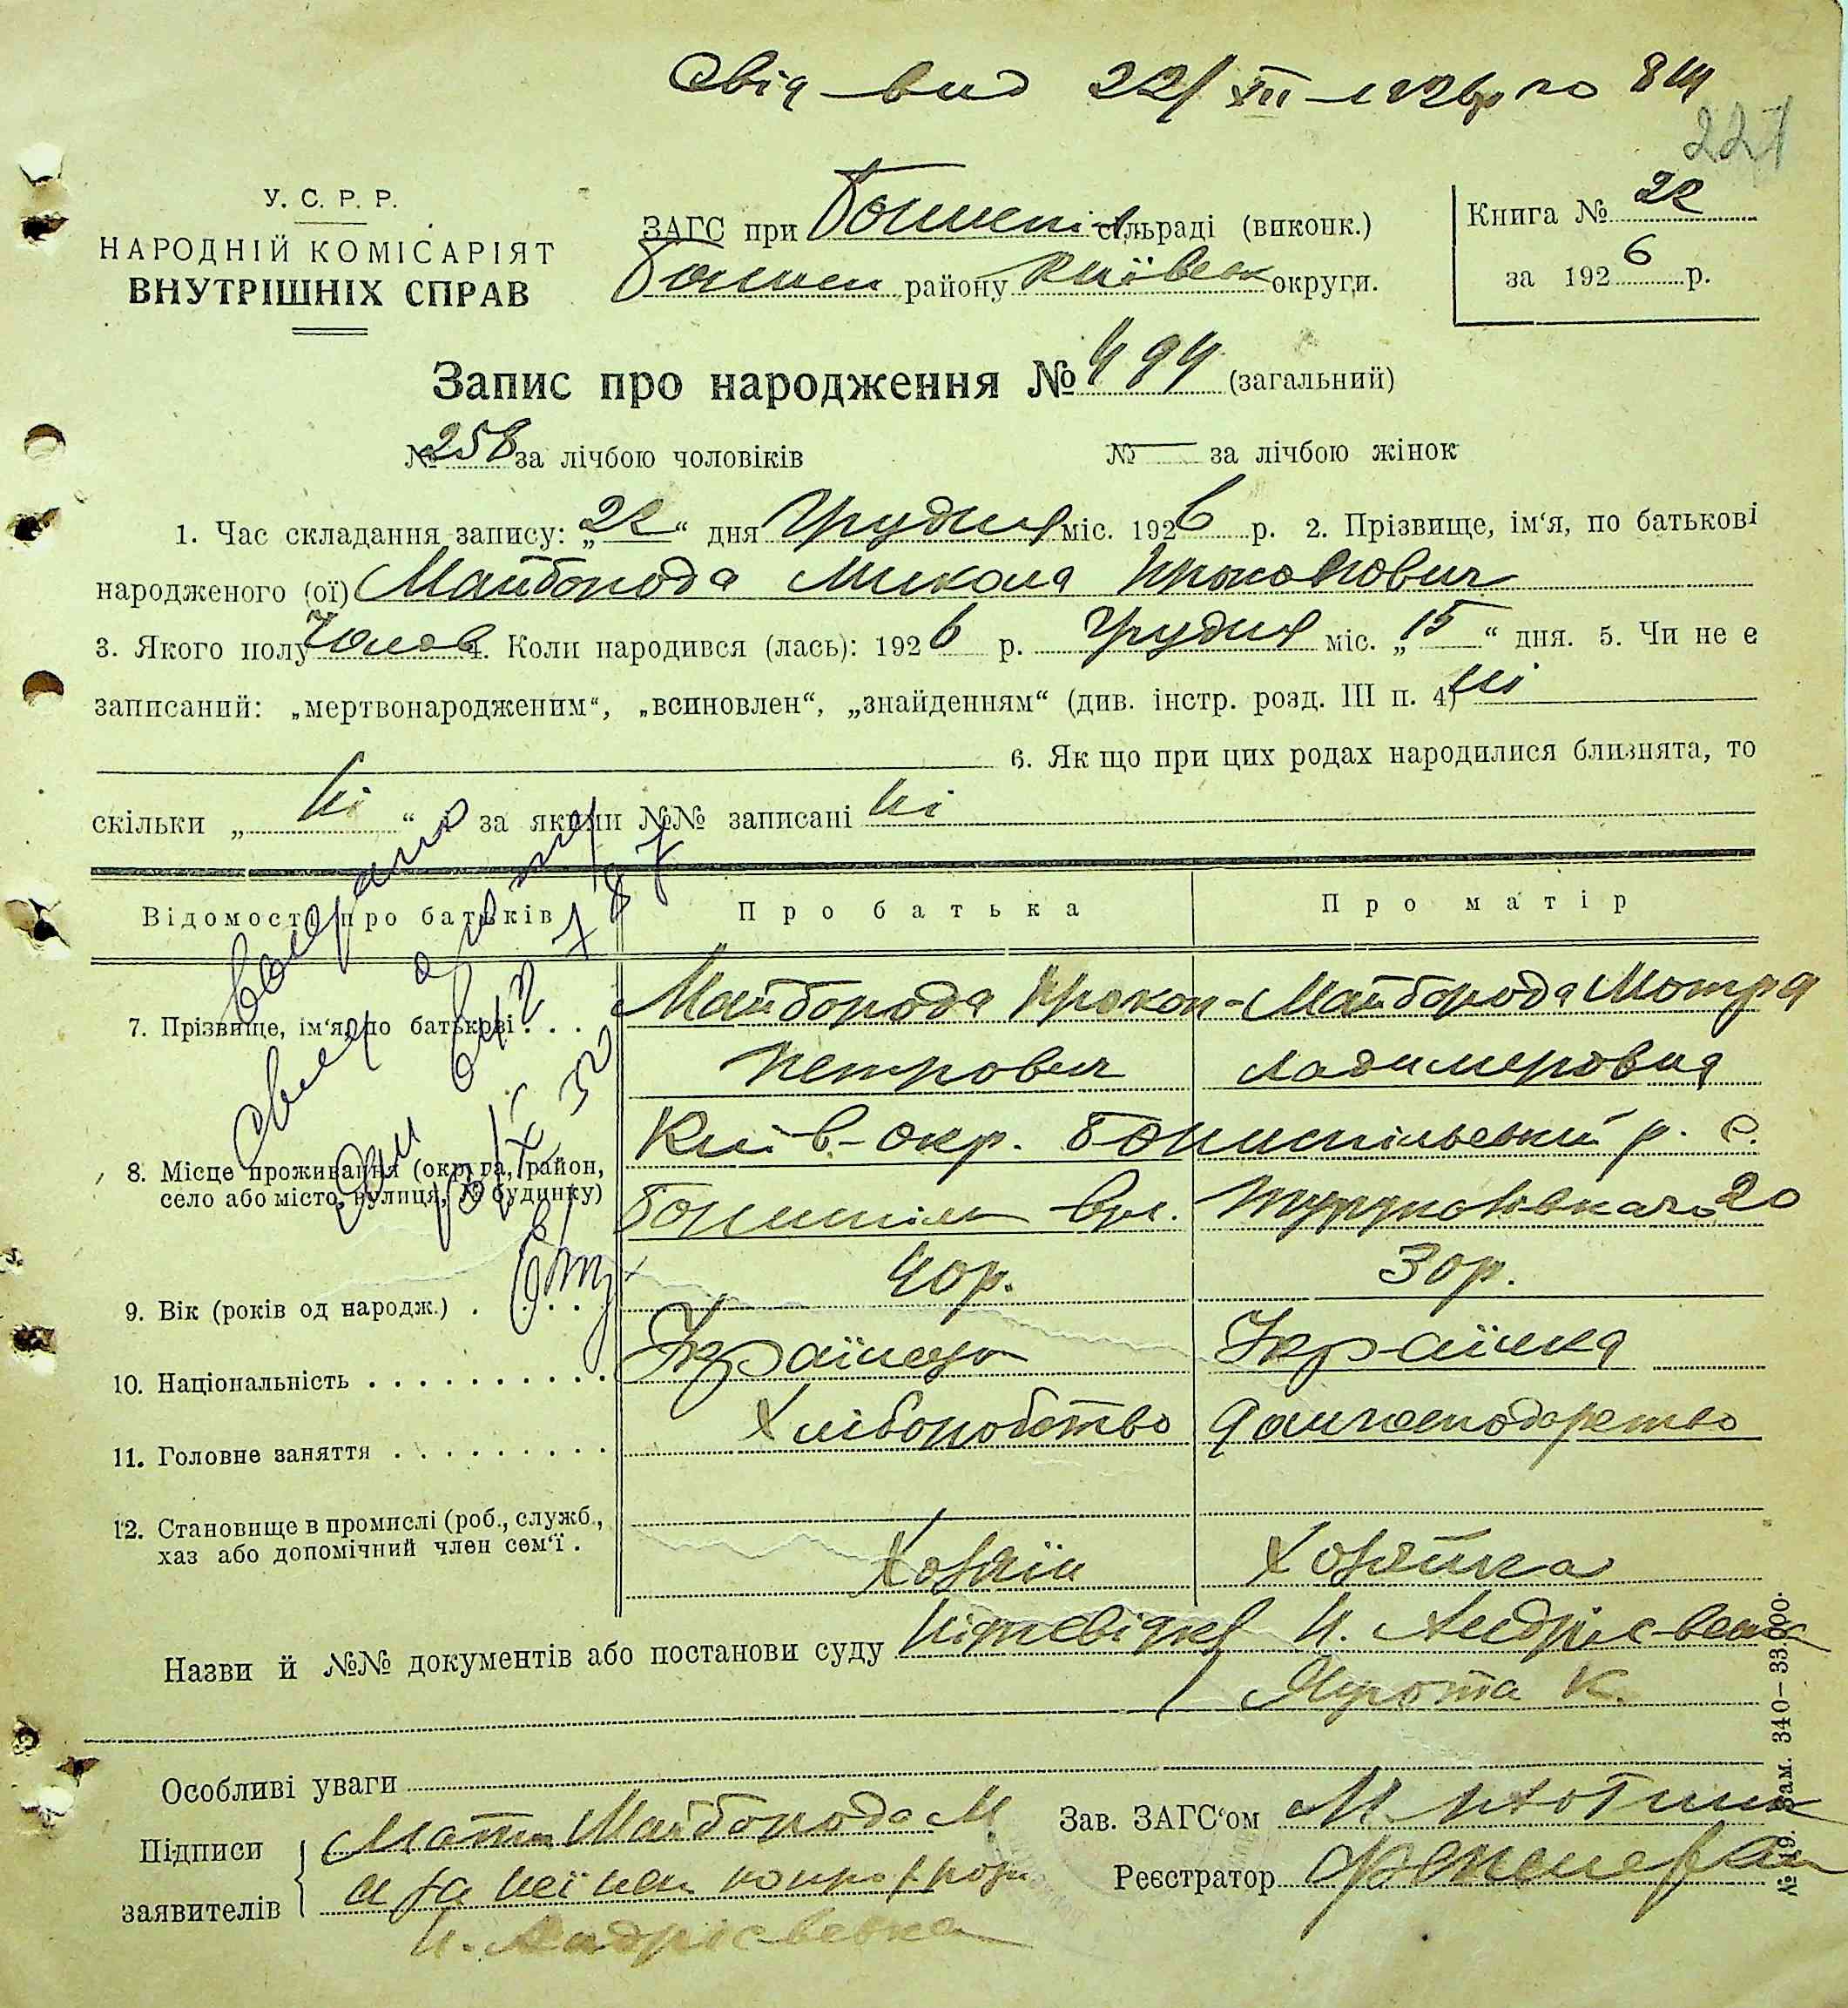 Свід вид 22/XII-1926р по 8
221
У. С. Р. Р.
НАРОДНІЙ КОМІСАРІЯТ
ВНУТРІШНІХ СПРАВ
ЗАГС при сільраді (виконк.)
району Київськ округи.
Книга № 22
за 1926 р.
Запис про народження № 494 (загальний)
№ 258 за лічбою чоловіків
№ — за лічбою жінок
1. Час складання запису: „22“ дня Грудня міс. 1926 р. 2. Прізвище, ім'я, по батькові
народженого (ої) Майборода Микола Прокопович
3. Якого полу Чолов 4. Коли народився (лась): 1926 р. Грудня міс. „15“ дня. 5. Чи не є
записаний: „мертвонародженим“, „всиновлен“, „знайденням“ (див. інстр. розд. III п. 4) ні
6. Як що при цих родах народилися близнята, то
скільки „ ні “ і за якими №№ записані ні
Відомості про батьків
Про батька
Про матір
7. Прізвище, ім'я, по батькові . . .
Майборода Прокоп
Петрович
Майборода Мотря
ладимеровна
8. Місце проживання (округа, район,
село або місто, вулиця, № будинку)
Київ-окр. Бориспільський р. с.
Бориспіль вул. 20
9. Вік (років од народж.) . . . .
40р.
30р.
10. Національність . . . . . . . . . .
Українець
Українка
11. Головне заняття . . . . . . . . .
Хліборобство
домгосподарство
12. Становище в промислі (роб., служб.,
хаз або допомічний член сем'ї .
Хозяїн
Хозяйка
Назви й №№ документів або постанови суду Н. Андрієвська
К.
Особливі уваги
Підписи
заявителів
Мати Майборода М
а за неї неп
Н. Андрієвська
Зав. ЗАГС'ом
Реєстратор
№ 19. Зам. 340—33.000.